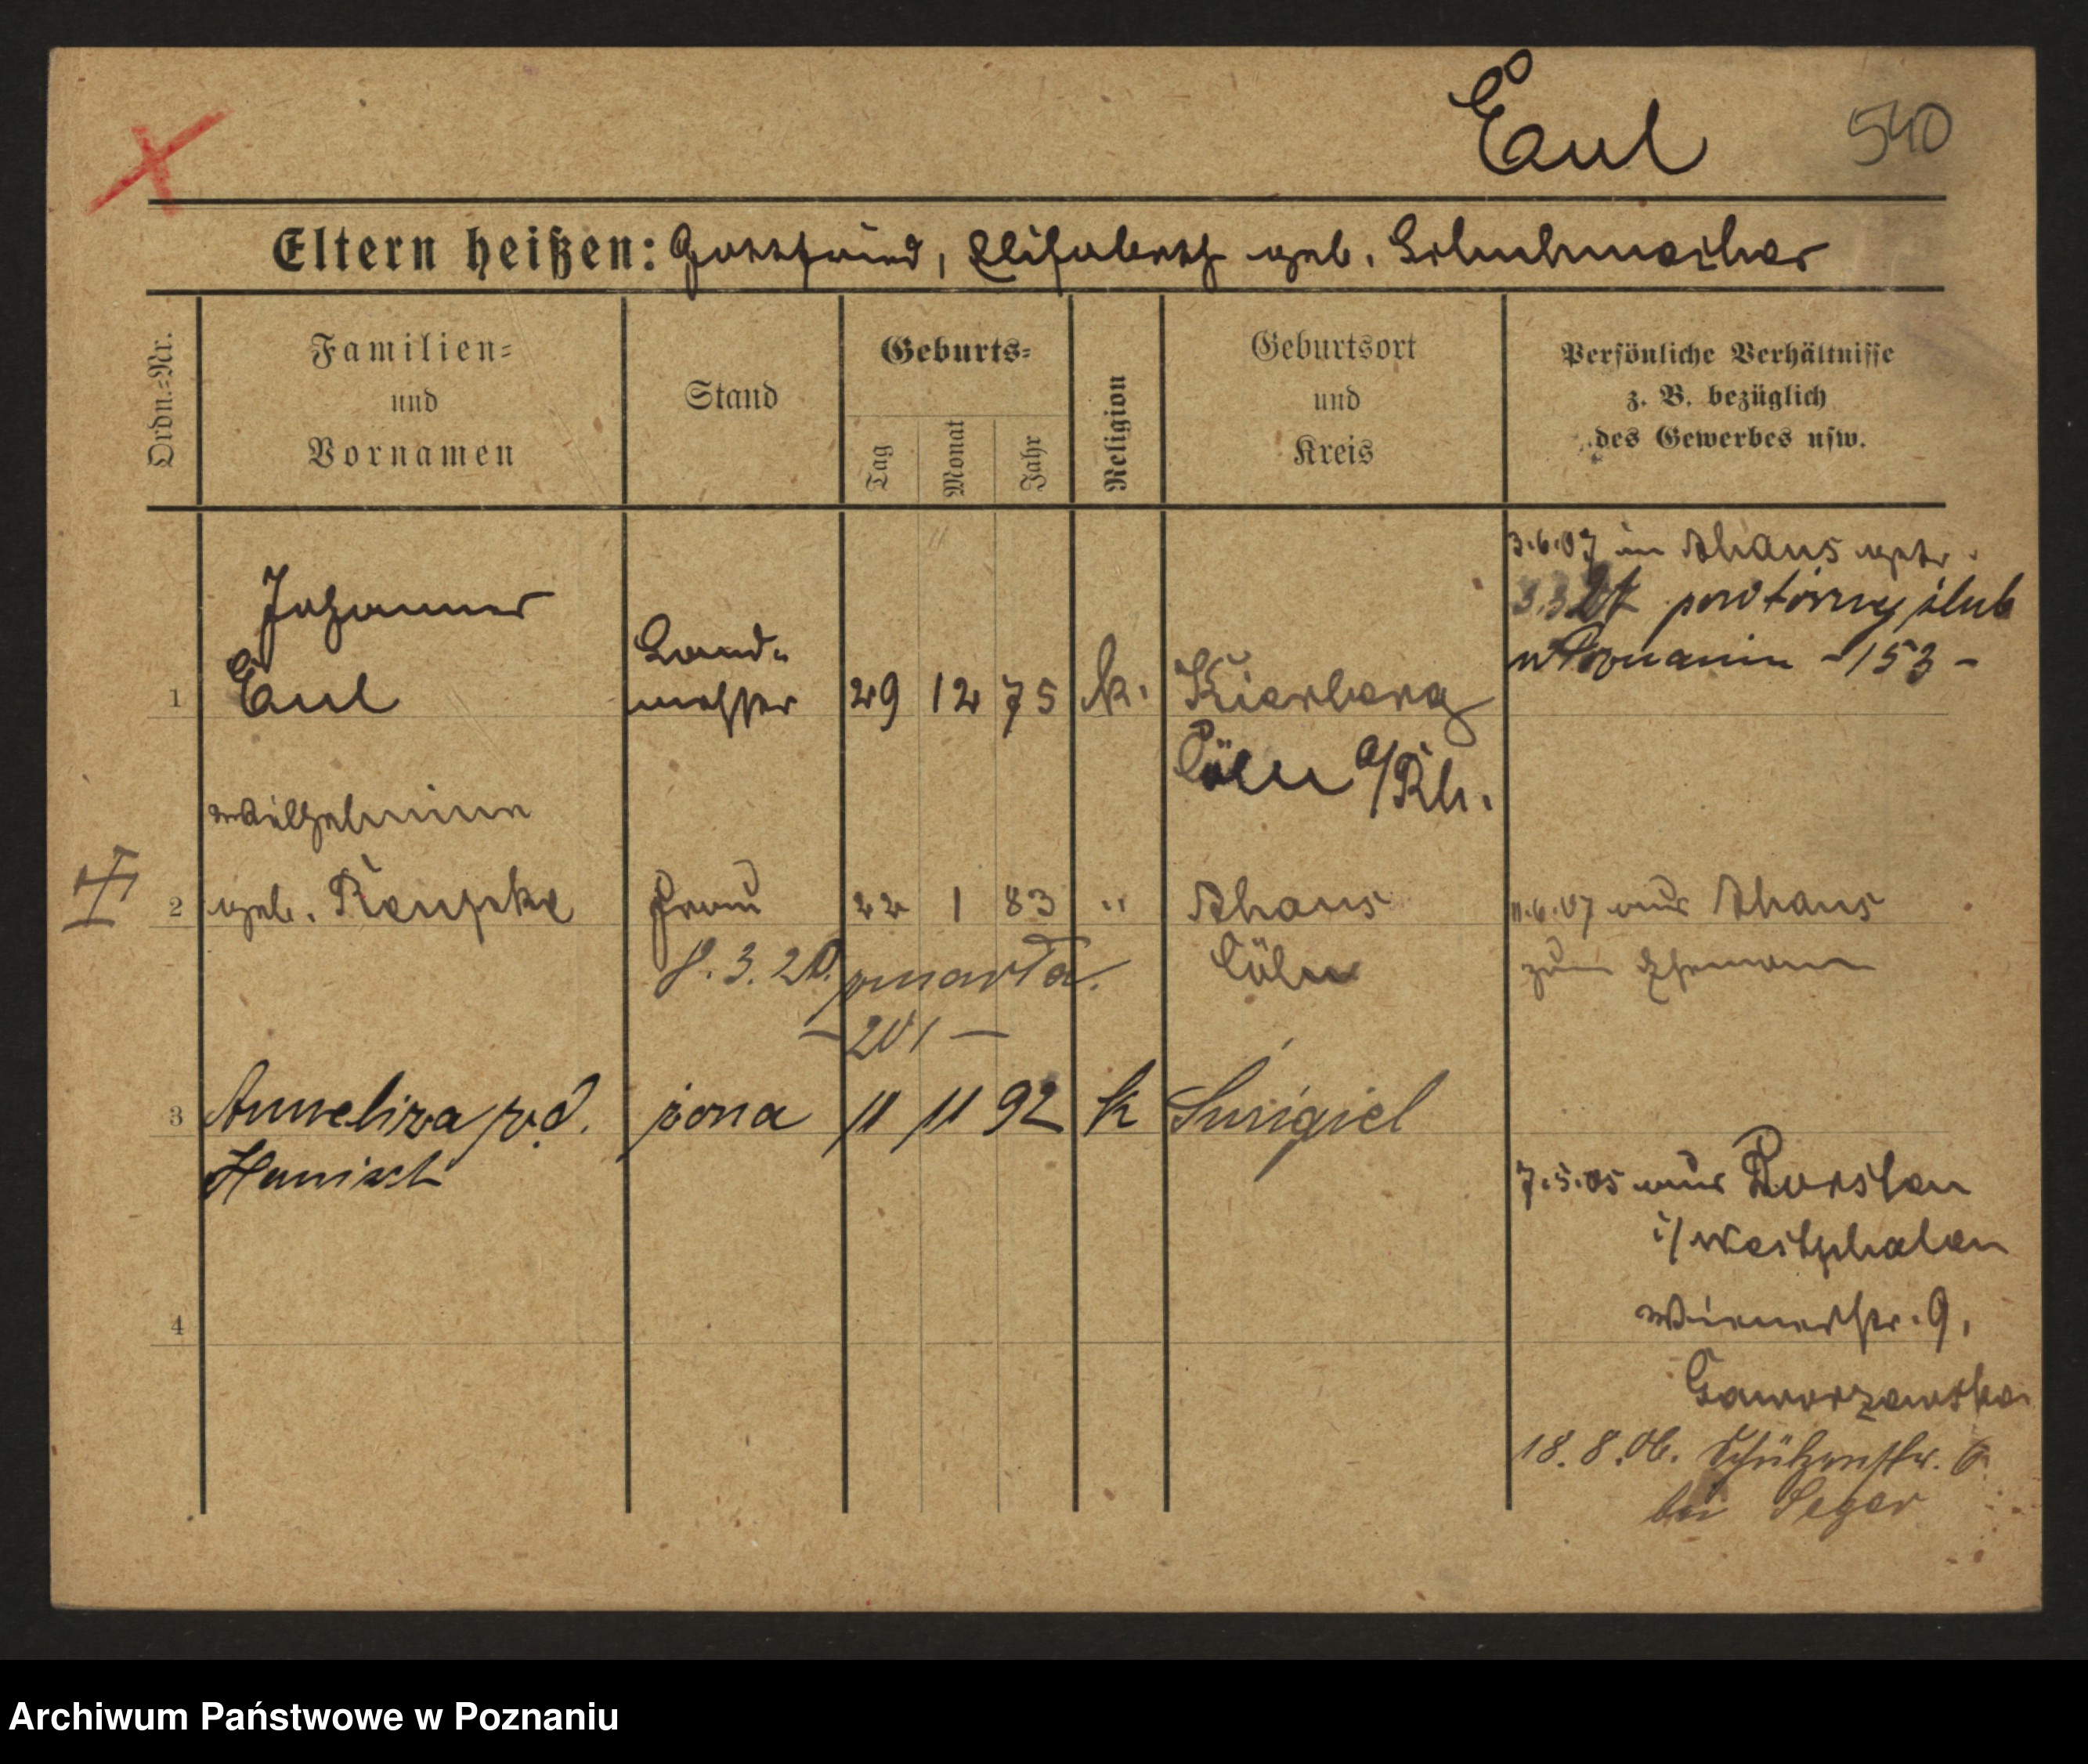 Eul 540
Eltern heißen: Gottfried, Elisabeth geb. Schuhmacher
Ordn.-Nr.
Familien-
und
Vornamen
Stand
Geburts-
Tag
Monat
Jahr
Religion
Geburtsort
und
Kreis
Persönliche Verhältnisse
z. B. bezüglich
des Gewerbes usw.
3.6.07 in Rhaus getr.
powtórny ślub
w Poznaniu - 153 -
Johannes
Land-
1 Eul messer 29 12 75 k. Kierberg
Cöln a/Rh.
Wilhelmine
2 geb. Frau 22 1 83 " 11.6.07 aus
8.3.20. zmarła. Cöln zum Ehemann
- 201 -
3 Anneliza żona 11 11 92 k Śmigiel
Hanisch
7.5.05 aus Dorsten
i/Westphalen
4 Wienerstr. 9,
18.8.06. Schützenstr. 6
bei Seger
Archiwum Państwowe w Poznaniu